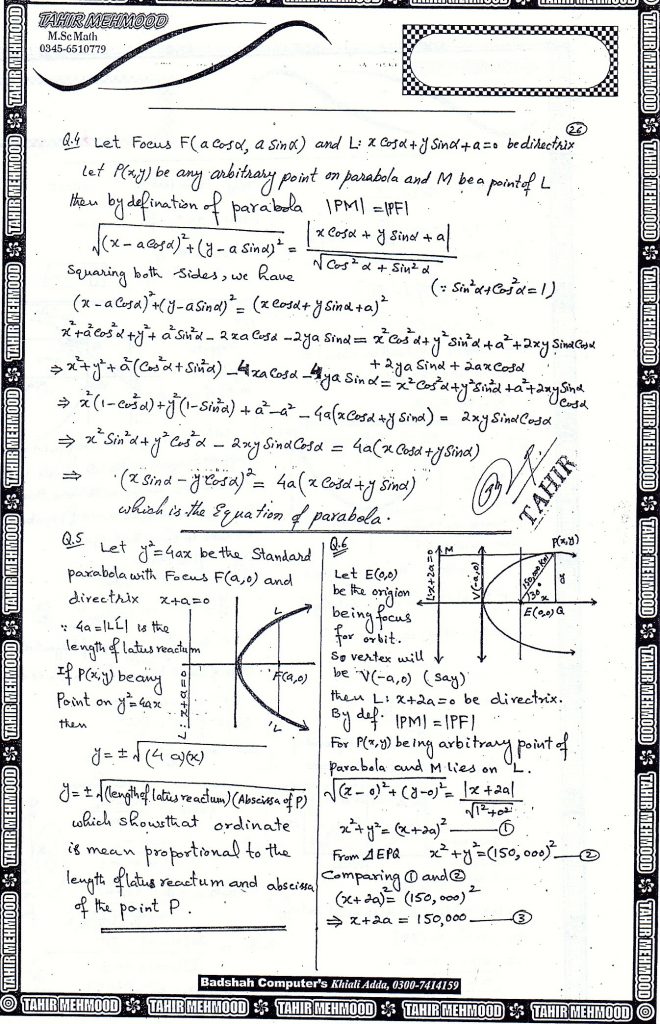 TAHIR MEHMOOD
M.Sc Math
0345-6510779
26
Q.4 Let Focus F(a Cosα, a Sinα) and L: x Cosα + y Sinα + a = 0 be directrix
Let P(x,y) be any arbitrary point on parabola and M be a point of L
then by defination of parabola |PM| = |PF|
√((x - a Cosα)² + (y - a Sinα)²) = |x Cosα + y Sinα + a| / √(Cos²α + Sin²α)
Squaring both sides, we have (∵ Sin²α + Cos²α = 1)
(x - a Cosα)² + (y - a Sinα)² = (x Cosα + y Sinα + a)²
x² + a²Cos²α + y² + a²Sin²α - 2xa Cosα - 2ya Sinα = x²Cos²α + y²Sin²α + a² + 2xy Sinα Cosα
+ 2ya Sinα + 2ax Cosα
⇒ x² + y² + a²(Cos²α + Sin²α) - 4xa Cosα - 4ya Sinα = x²Cos²α + y²Sin²α + a² + 2xy Sinα
Cosα
⇒ x²(1 - Cos²α) + y²(1 - Sin²α) + a² - a² - 4a(x Cosα + y Sinα) = 2xy Sinα Cosα
⇒ x² Sin²α + y² Cos²α - 2xy Sinα Cosα = 4a(x Cosα + y Sinα)
⇒ (x Sinα - y Cosα)² = 4a(x Cosα + y Sinα)
which is the Equation of parabola.
TAHIR
Q.5 Let y² = 4ax be the Standard
parabola with Focus F(a,0) and
directrix x+a=0
∵ 4a = |LĹ| is the
length of latus reactum
If P(x,y) be any
Point on y²=4ax
then
L: x+a=0
L
F(a,0)
'L
y = ±√((4a)(x))
y = ±√((length of latus reactum)(Abscissa of P))
which shows that ordinate
is mean proportional to the
length of latus reactum and abscissa
of the point P.
Q.6
Let E(0,0)
be the origion
being focus
for orbit.
So vertex will
be V(-a,0) (say)
L: x+2a=0
M
V(-a,0)
P(x,y)
150,000 Km
30°
x
y
E(0,0) Q
then L: x+2a=0 be directrix.
By def. |PM| = |PF|
For P(x,y) being arbitrary point of
parabola and M lies on L.
√((x-0)² + (y-0)²) = |x+2a| / √(1²+0²)
x² + y² = (x+2a)² — ①
From ΔEPQ x² + y² = (150,000)² — ②
Comparing ① and ②
(x+2a)² = (150,000)²
⇒ x+2a = 150,000 — ③
Badshah Computer's Khiali Adda, 0300-7414159
TAHIR MEHMOOD TAHIR MEHMOOD TAHIR MEHMOOD TAHIR MEHMOOD TAHIR MEHMOOD